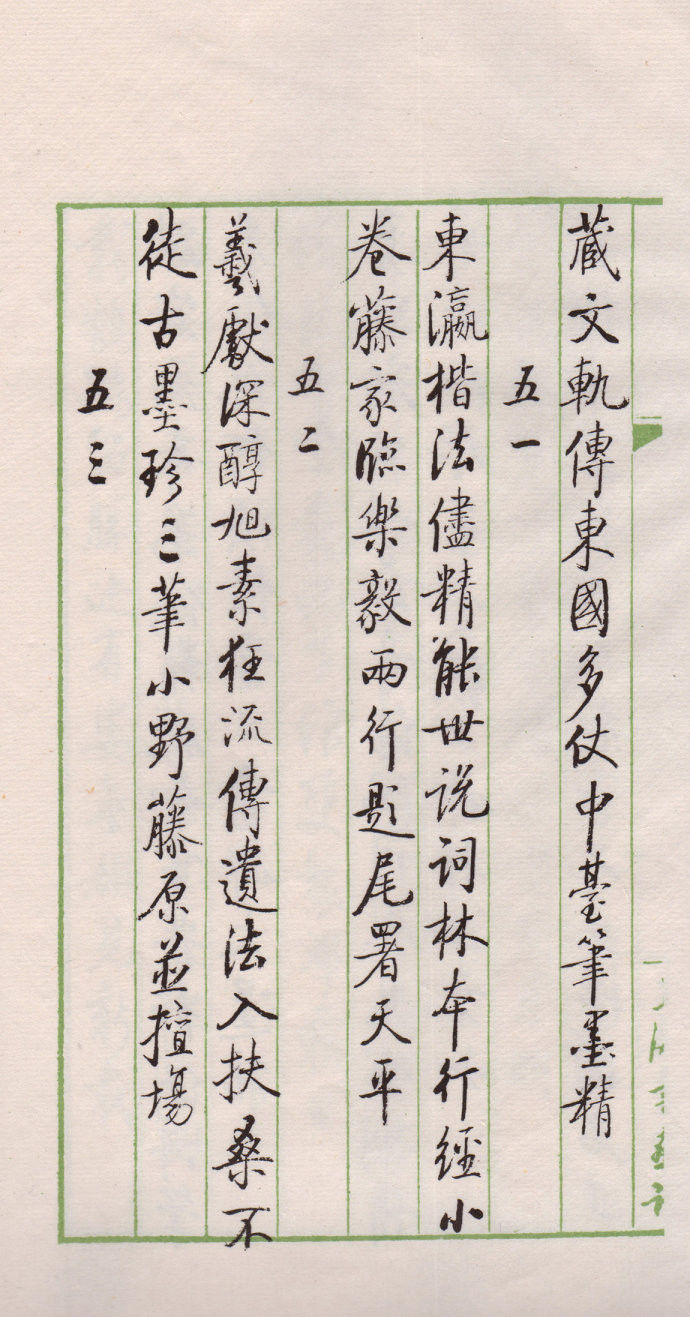 藏文軌傳東國多仗中臺筆墨精
五一
東瀛楷法儘精能世説詞林本行經小
卷藤家臨樂毅兩行題尾署天平
五二
羲獻深醇旭素狂流傳遺法入扶桑不
徒古墨珍三筆小野藤原並擅場
五三